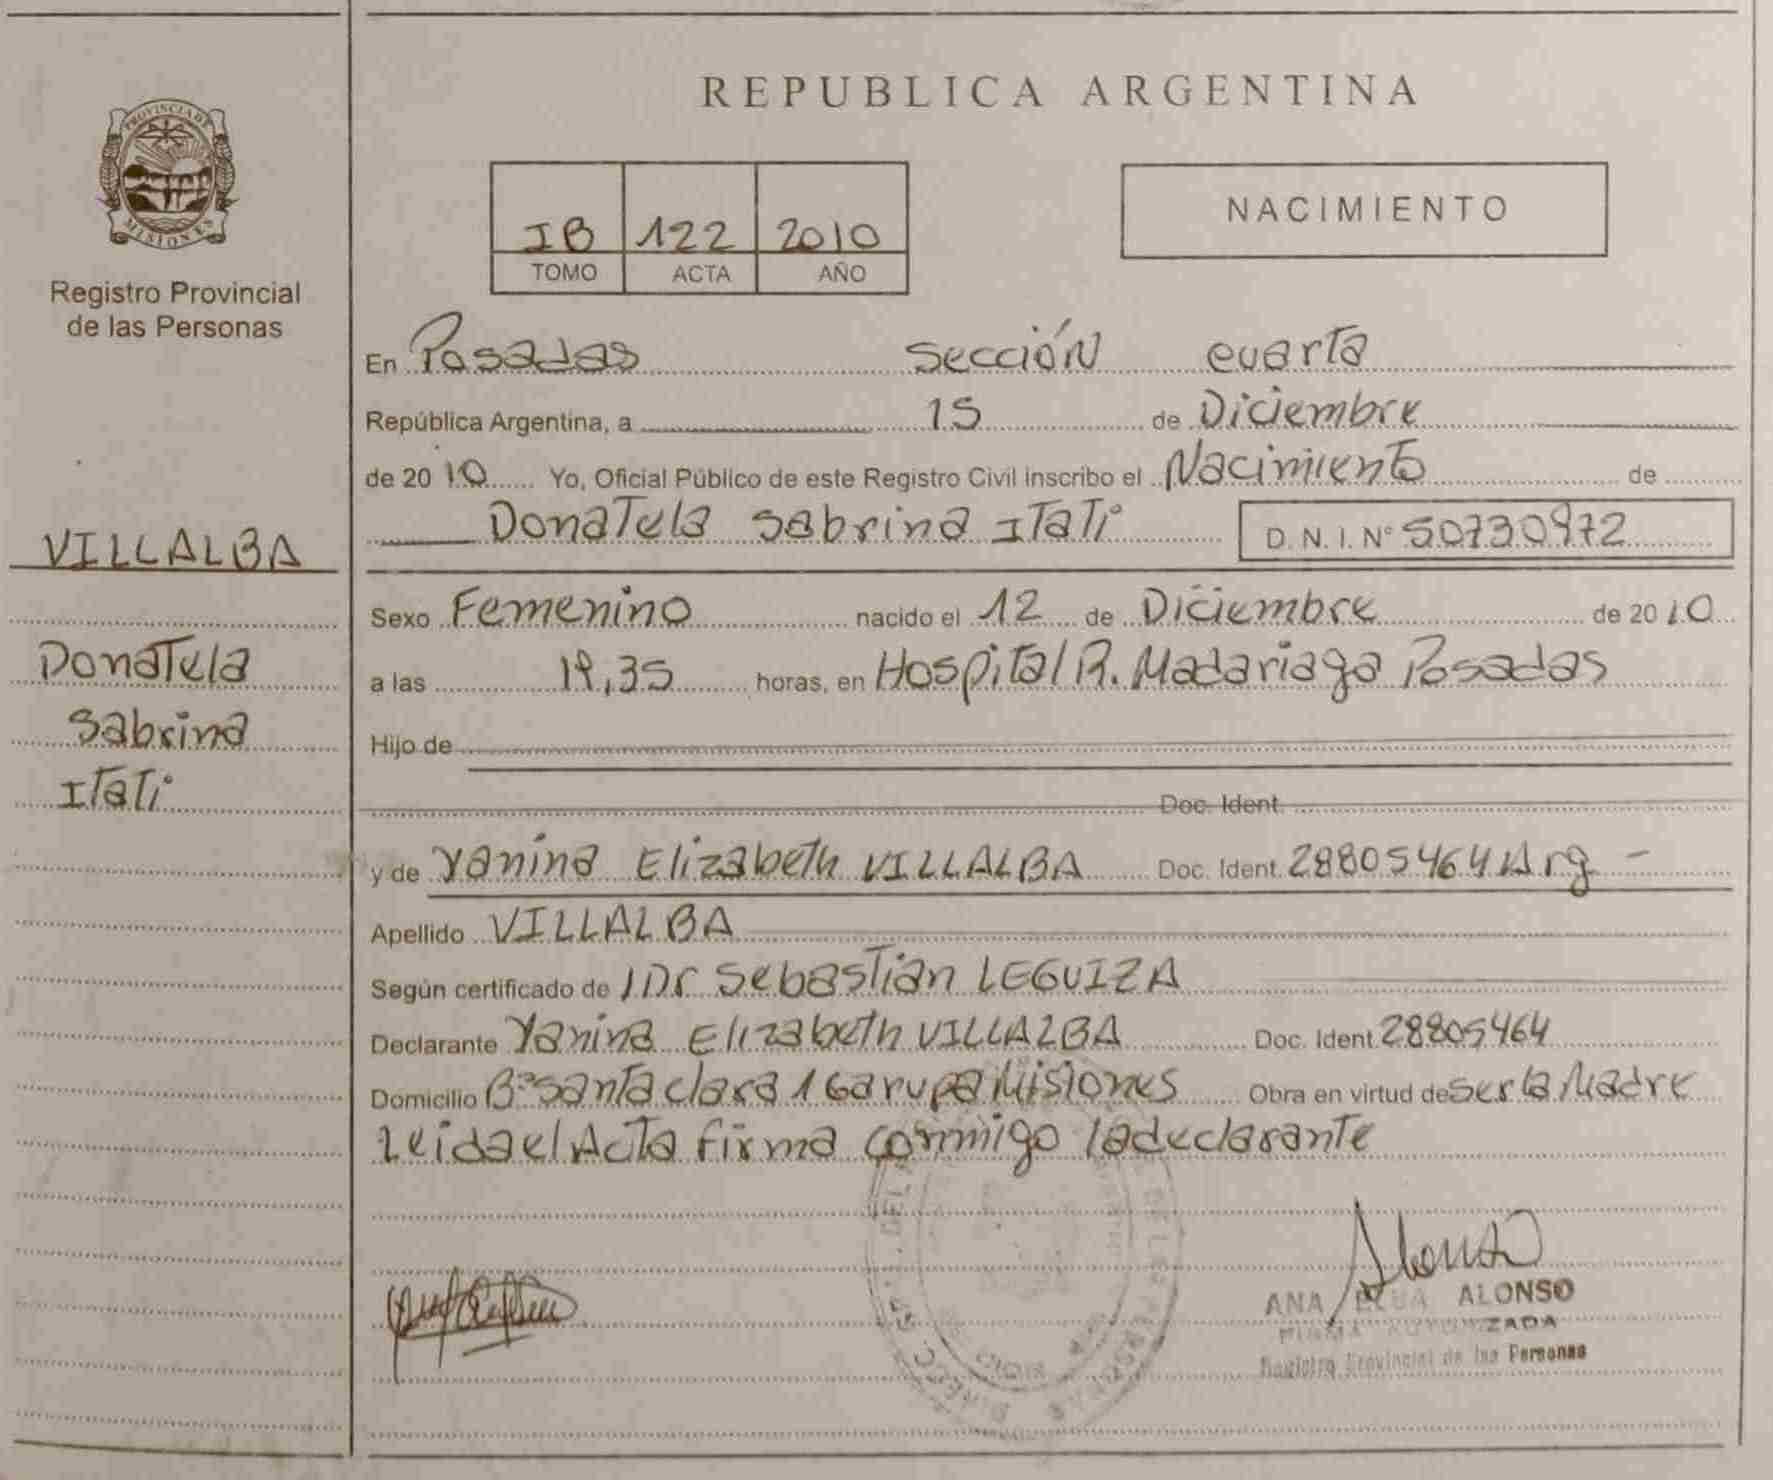 REPUBLICA ARGENTINA
PROVINCIA DE
MISIONES
Registro Provincial
de las Personas
VILLALBA
Donatela
Sabrina
Itati
IB 122 2010
TOMO ACTA AÑO
NACIMIENTO
En Posadas Sección cuarta
República Argentina, a 15 de Diciembre
de 2010 Yo, Oficial Público de este Registro Civil inscribo el Nacimiento de
Donatela Sabrina Itati D. N. I. N° 50730972
Sexo Femenino nacido el 12 de Diciembre de 2010
a las 19,35 horas, en Hospital R. Madariaga Posadas
Hijo de
Doc. Ident.
y de Yanina Elizabeth VILLALBA Doc. Ident. 28805464 Arg -
Apellido VILLALBA
Según certificado de / Dr Sebastián LEGUIZA
Declarante Yanina Elizabeth VILLALBA Doc. Ident. 28805464
Domicilio B° Santa clara 1 Garupa Misiones Obra en virtud de ser la Madre
Leida el Acta firma conmigo la declarante
ANA ALONSO
Registro Provincial de las Personas